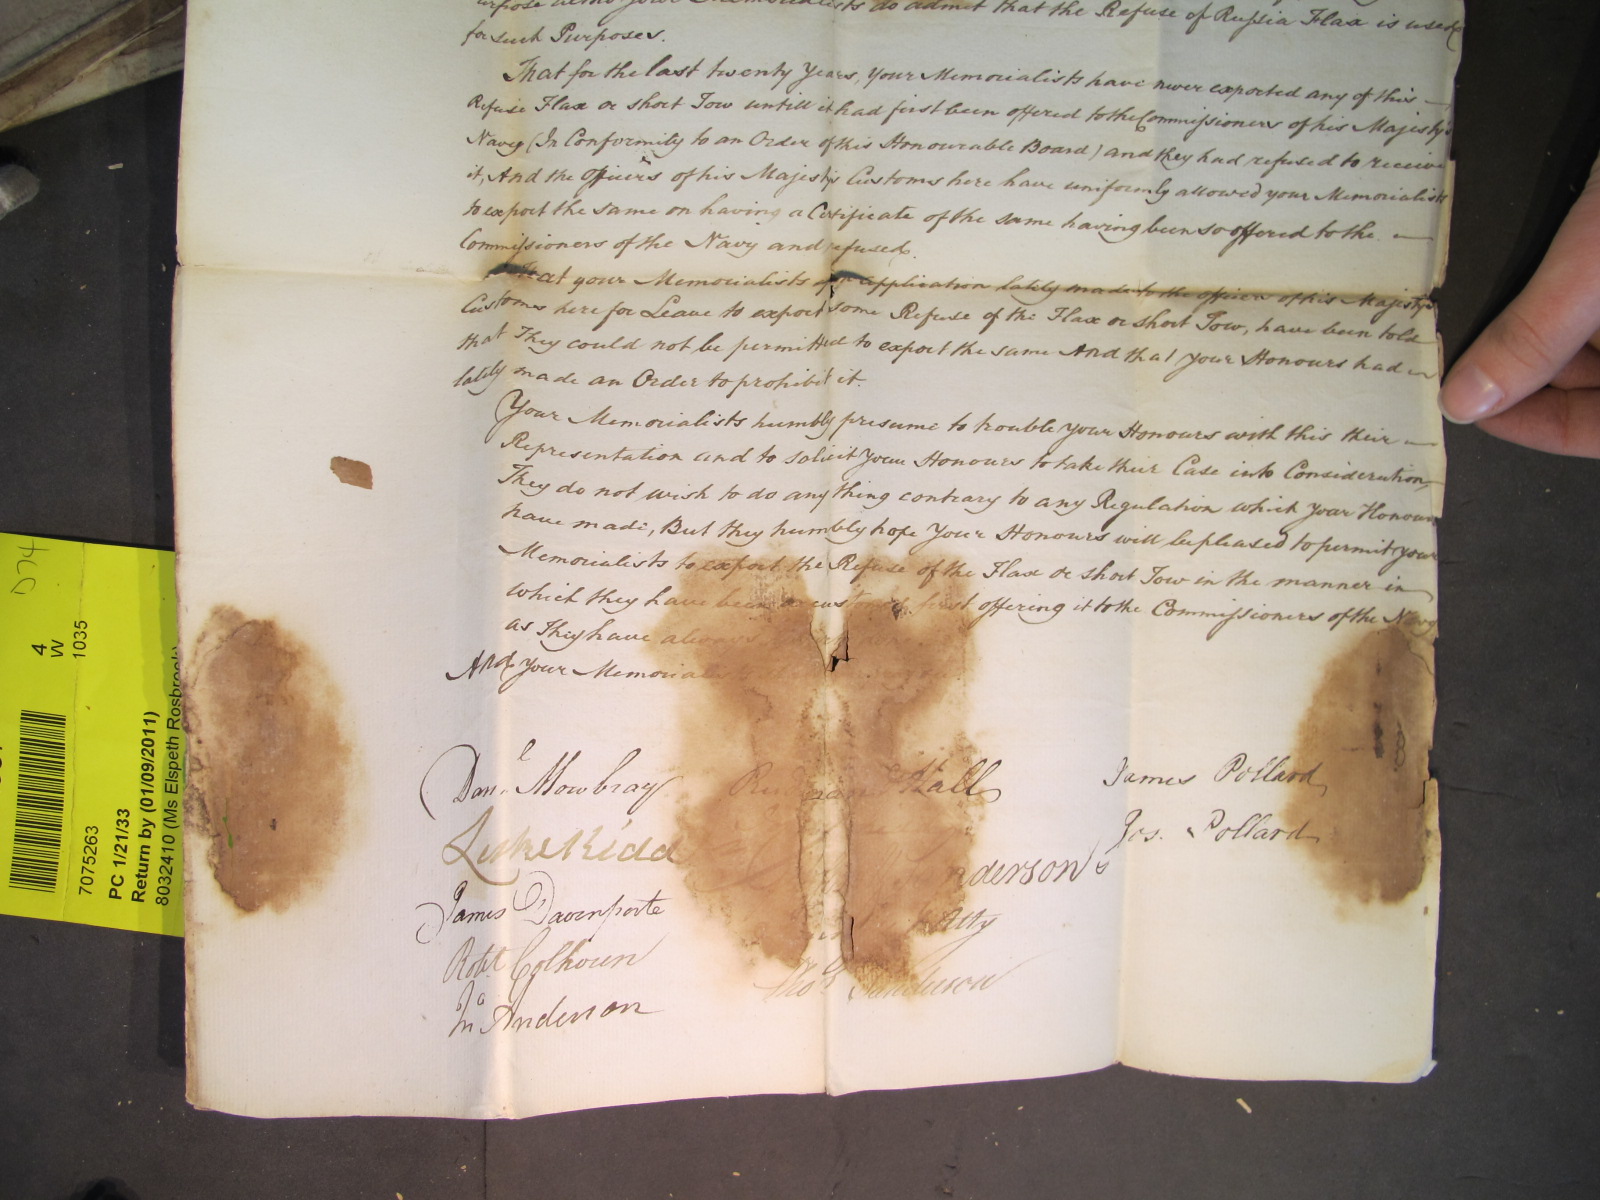 your Memorialists do admit that the Refuse of Russia Flax is used
for such Purposes.
That for the last twenty Years, your Memorialists have never exported any of this
Refuse Flax or short Tow untill it had first been offered to the Commissioners of his Majesty's
Navy (In Conformity to an Order of this Honourable Board) and they had refused to receive
it, And the Officers of his Majesty's Customs here have uniformly allowed your Memorialists
to export the same on having a Certificate of the same having been so offered to the
Commissioners of the Navy and refused.
That your Memorialists on application lately made to the officers of his Majesty's
Customs here for Leave to export some Refuse of the Flax or short Tow, have been told
that They could not be permitted to export the same And that your Honours had
lately made an Order to prohibit it.
Your Memorialists humbly presume to trouble your Honours with this their
Representation and to solicit your Honours to take their Case into Consideration,
They do not wish to do any thing contrary to any Regulation which your Honours
have made, But they humbly hope your Honours will be pleased to permit your
Memorialists to export the Refuse of the Flax or short Tow in the manner in
which they have been accustomed first offering it to the Commissioners of the Navy
as They have always
And your Memorialists
Danl. Mowbray Hall James Pollard
Luke Kidd nderson Jos. Pollard
James Davenporte
Robt. Colhoun Thos. Sanderson
Jno. Anderson
D74
4
W
1035
7075263
PC 1/21/33
Return by (01/09/2011)
8032410 (Ms Elspeth Rosbrook)